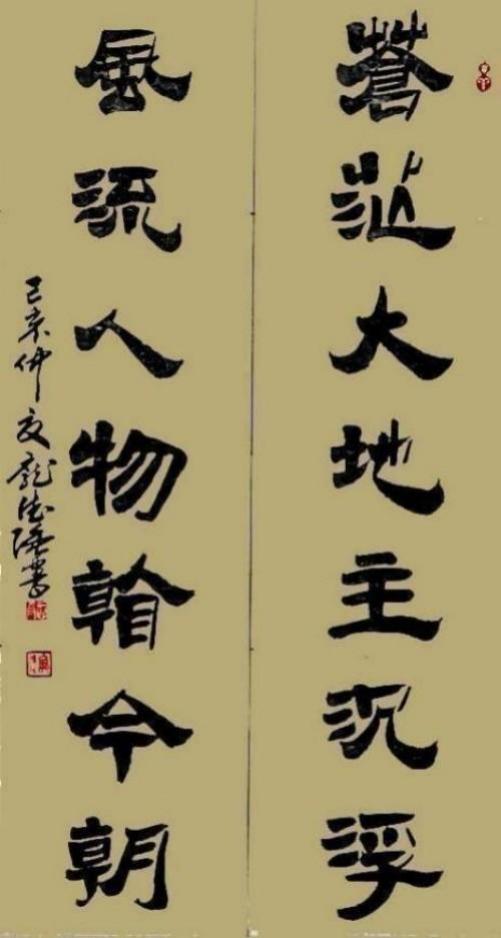 蒼茫大地主沉浮
風流人物看今朝
己亥仲夏龍德書